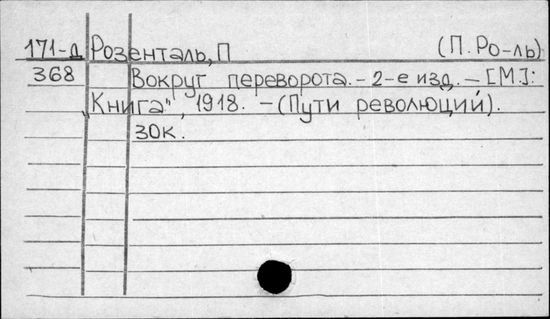 171-д Розенталь, П (П. Ро-ль)
368 Вокруг переворота. - 2-е изд. - [М]:
„Книга", 1918. - (Пути революций).
30к.